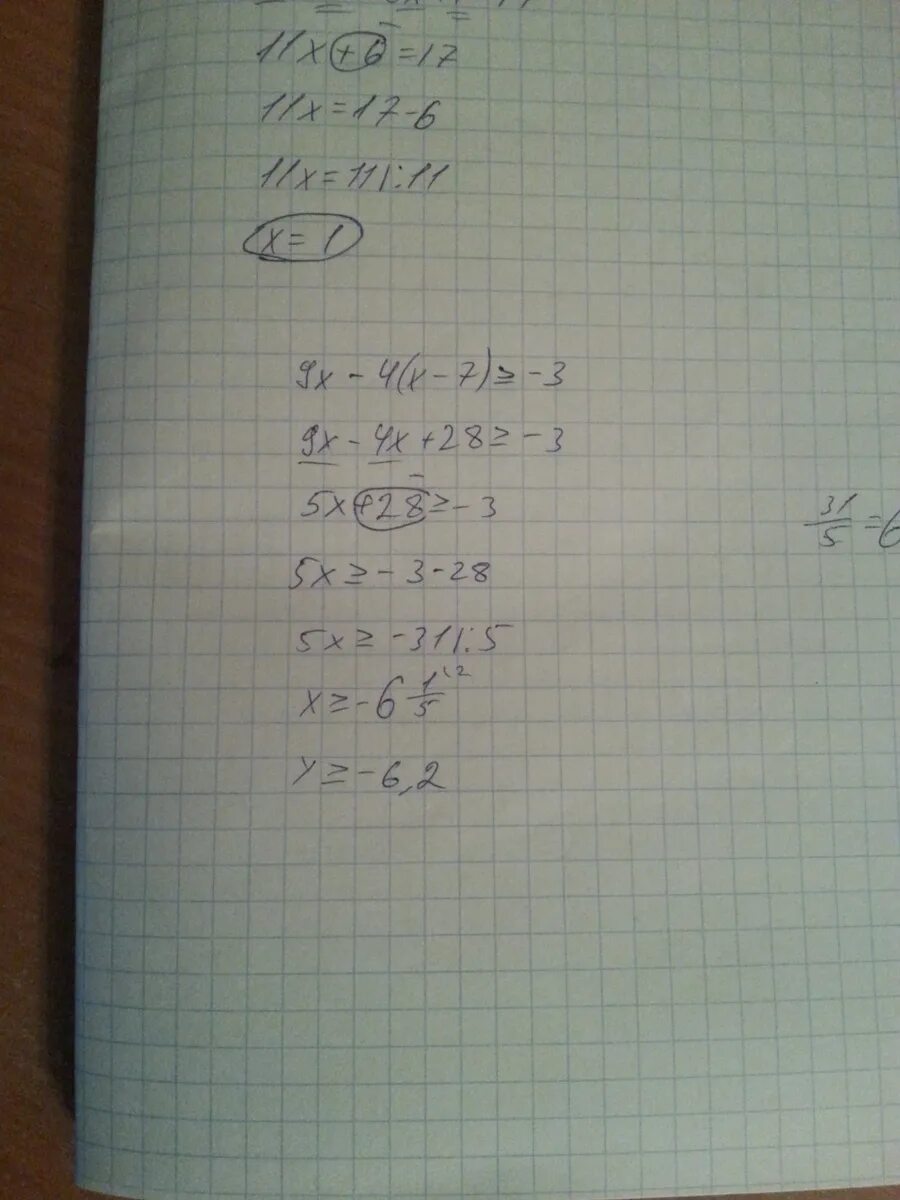 11x+6=17
11x=17-6
11x=11|:11
x=1
9x-4(x-7)≥-3
9x-4x+28≥-3
5x+28≥-3
5x≥-3-28
5x≥-31|:5
x≥-6 1/5
x≥-6,2
31/5=6